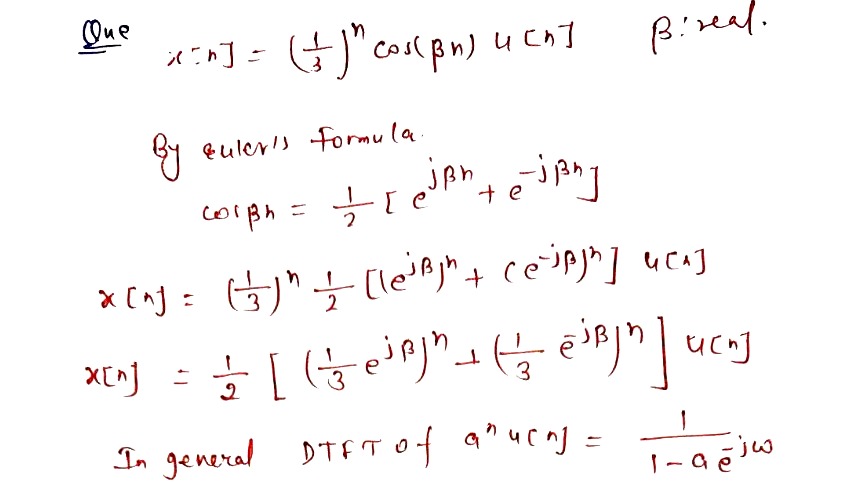 Que x[n] = (1/3)^n cos(βn) u[n] β: real.
By euler's formula.
cosβn = 1/2 [e^jβn + e^-jβn]
x[n] = (1/3)^n 1/2 [(e^jβ)^n + (e^-jβ)^n] u[n]
x[n] = 1/2 [(1/3 e^jβ)^n + (1/3 e^-jβ)^n] u[n]
In general DTFT of a^n u[n] = 1/(1-a e^-jω)